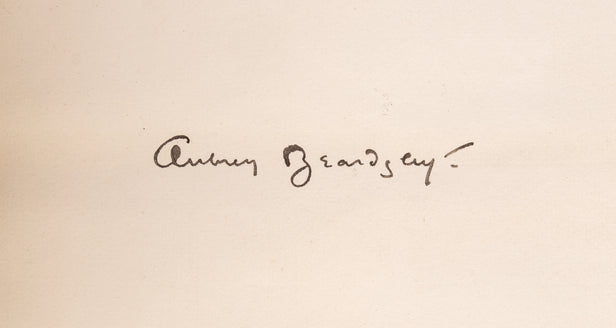 Aubrey Beardsley.